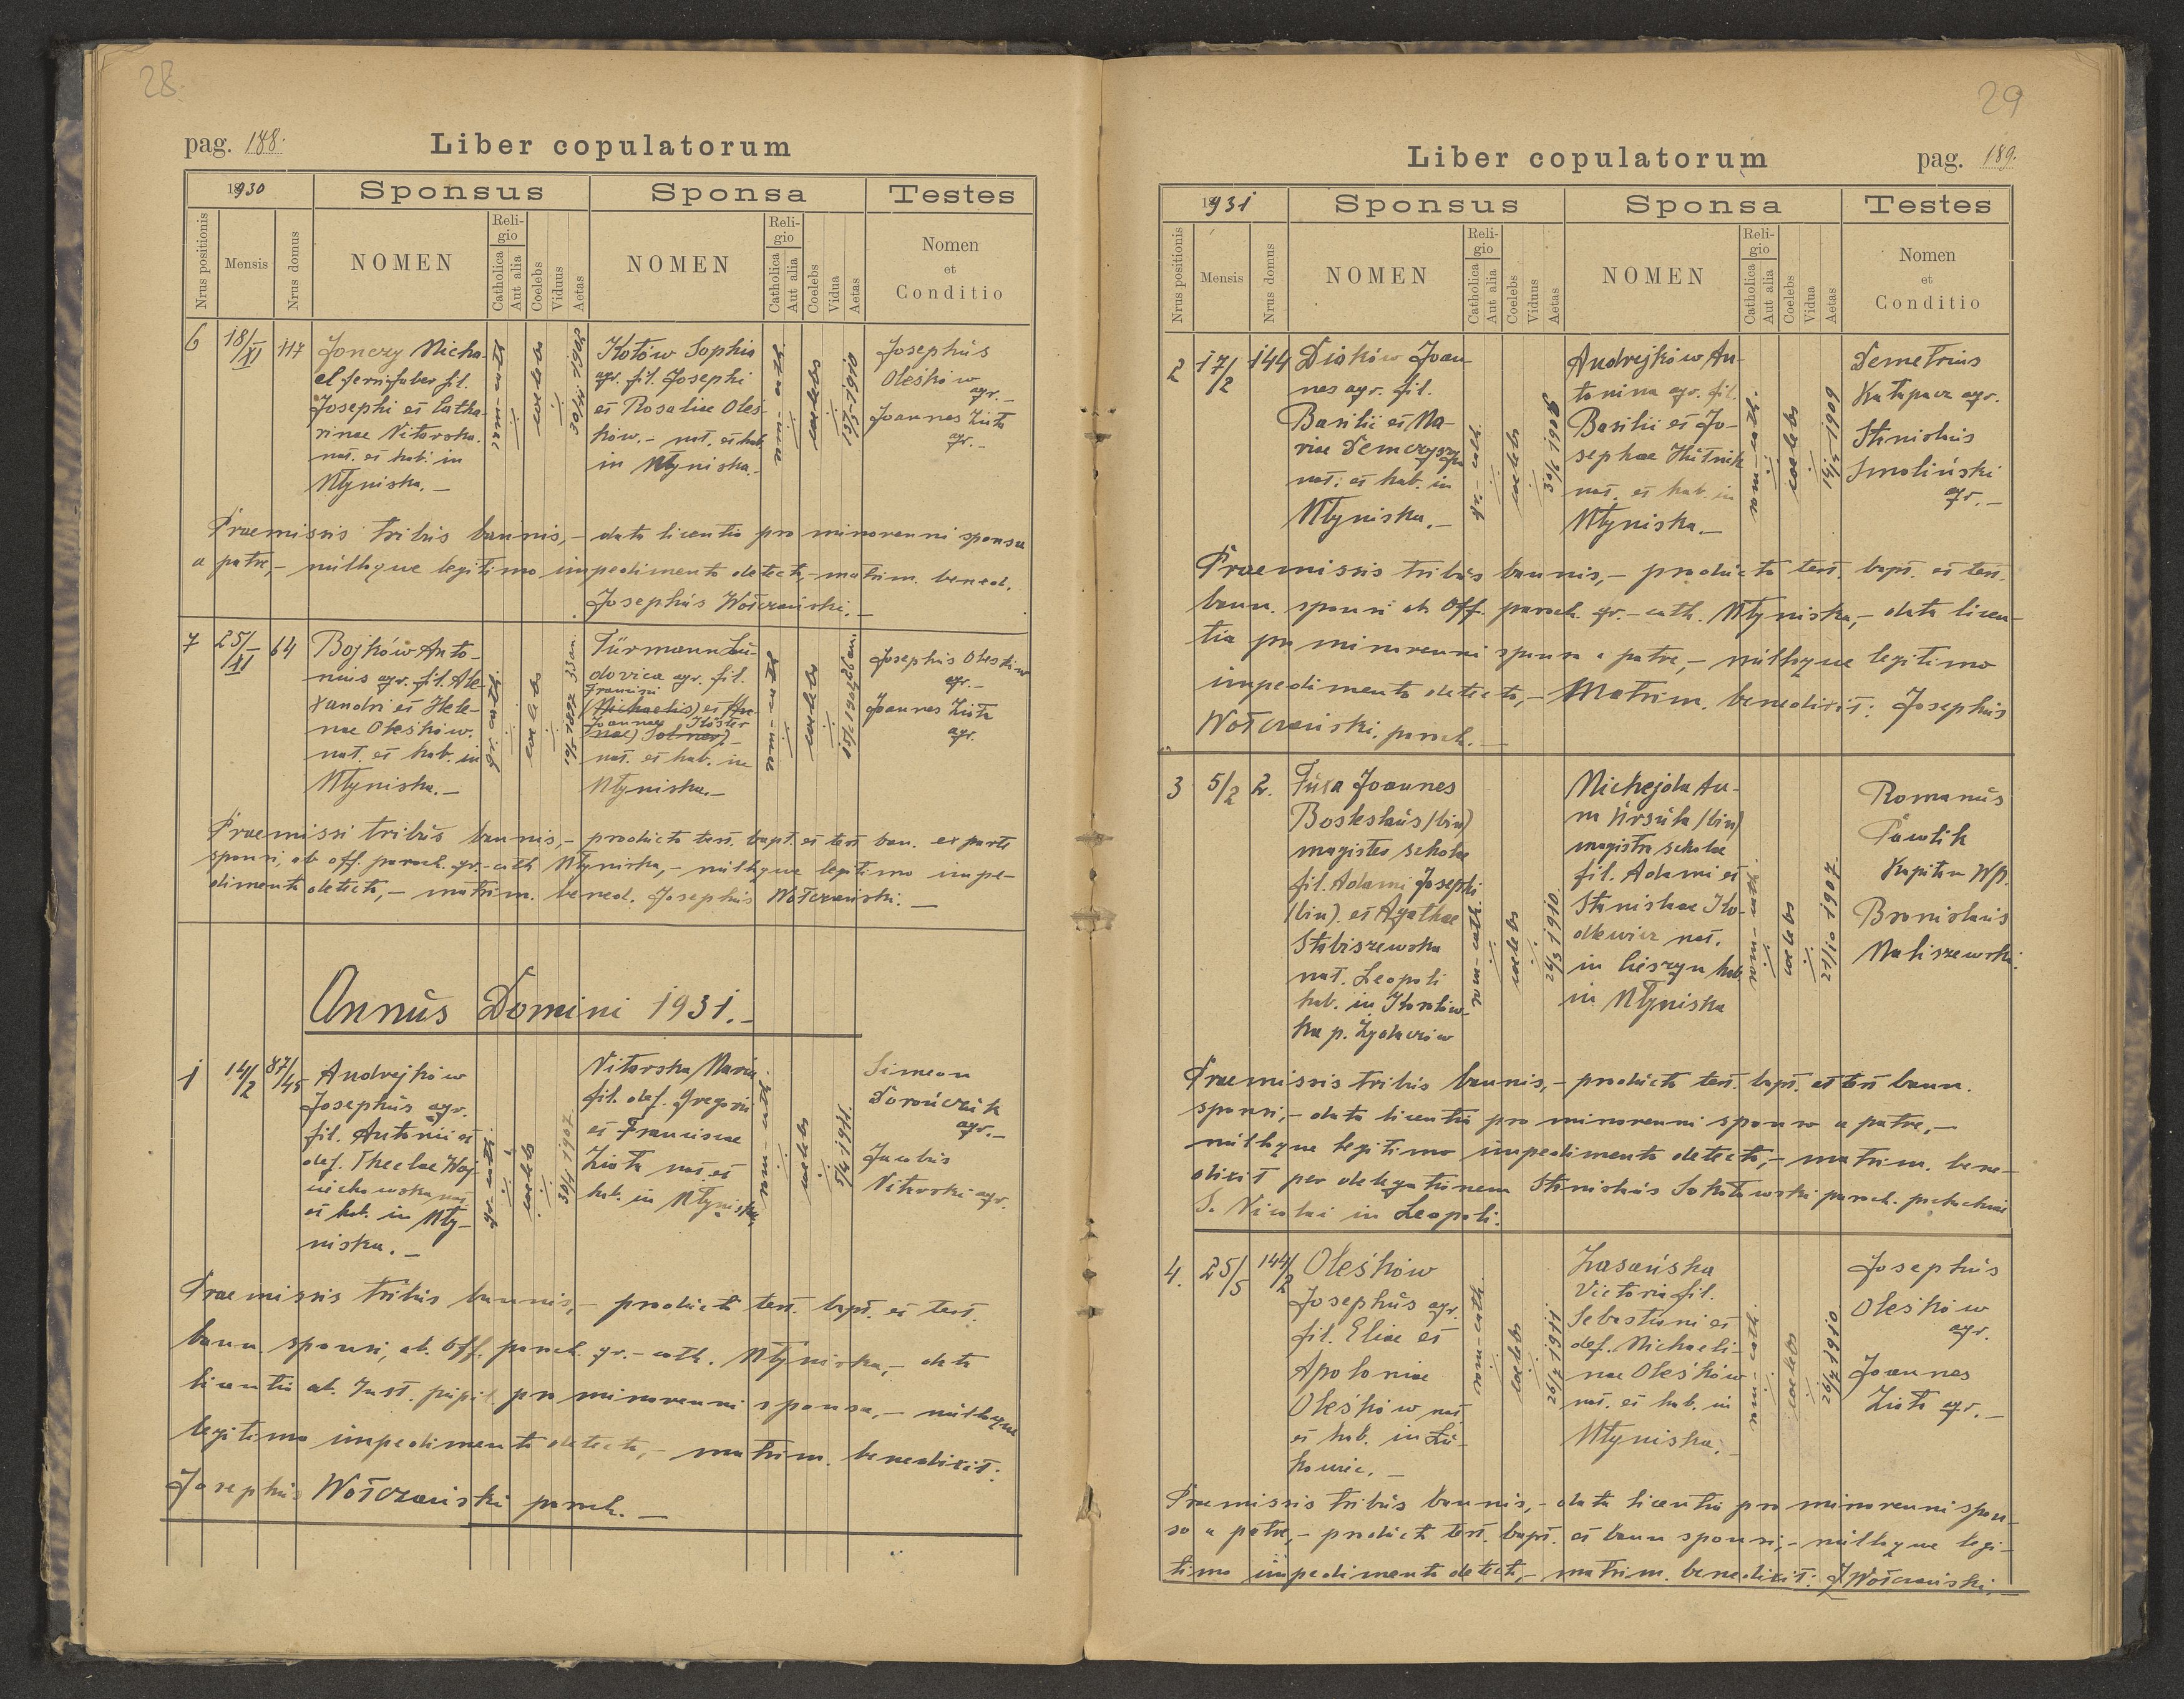 28
pag. 188.
Liber copulatorum
1930
Sponsus
Sponsa
Testes
Nrus positionis
Mensis
Nrus domus
NOMEN
Religio
Catholica
Aut alia
Coelebs
Viduus
Aetas
NOMEN
Religio
Catholica
Aut alia
Coelebs
Vidua
Aetas
Nomen
et
Conditio
6
18/XI
117
Jonczy Micha-
el ferrifaber fil.
Josephi et Catha-
rinae Nitorska.
nat. et hab. in
Młyniska.—
coelebs
Kotów Sophia
agr. fil. Josephi
et Rosaliae Oleś-
ków.- nat. et hab.
in Młyniska.-
coelebs
15/5-1910
Josephus
Oleśków
agr.-
Joannes Zięta
agr.-
Praemissis tribus bannis,- data licentia pro minorenni sponsa
a patre,- nulloque legitimo impedimento detecto,- matrim. bened.
Josephus Wołczański.—
7
25/XI
64
Bojków Anto-
nius agr. fil. Ale-
xandri et Hele-
nae Oleśków.
nat. et hab. in
Młyniska.—
gr. cath.
coelebs
1897 33 an.
Fürmann Lu-
dovica agr. fil.
Francisci
(Michaelis) et
Joannae
nat. et hab. in
Młyniska.—
coelebs
Josephus Oleśków
agr.-
Joannes Zięta
agr.
Praemissi tribus bannis,- producto test. bapt. et test ban. ex parte
sponsi, ab off. paroch. gr.-cath Młyniska,- nulloque legitimo impe-
dimento detecto,- matrim. bened. Josephus Wołczański.—
Annus Domini 1931.-
1
14/2
87/45
Andrejków
Josephus agr.
fil. Antonii et
def. Theclae Woj-
ciechowska nat
et hab. in Mły-
niska.—
gr.-cath.
coelebs
30/1 1907
Nitorska Maria
fil. def. Gregorii
et Franciscae
Zięta nat. et
hab. in Młyniska
rom-cath.
coelebs
5/4 1911.
Simeon
agr.-
Jacobus
Nitorski agr.
Praemissis tribus bannis,- producto test. bapt. et test.
bann. sponsi, ab. Off. paroch. gr.-cath. Młyniska,- data
licentia ab. Inst. pupil. pro minorenni sponsa,- nulloque
legitimo impedimento detecto,- matrim. benedixit:
Josephus Wołczański paroch.—
29
Liber copulatorum
pag. 189.
1931
Sponsus
Sponsa
Testes
Nrus positionis
Mensis
Nrus domus
NOMEN
Religio
Catholica
Aut alia
Coelebs
Viduus
Aetas
NOMEN
Religio
Catholica
Aut alia
Coelebs
Vidua
Aetas
Nomen
et
Conditio
2
17/2
144
Diaków Joan-
nes agr. fil.
Basilii et Ma-
riae
nat. et hab. in
Młyniska.—
gr.-cath.
coelebs
30/6 1908
Andrejków An-
tonina agr. fil.
Basilii et Jo-
sephae Hutnik
nat. et hab. in
Młyniska.—
rom-cath.
coelebs
14/5 1909
Demetrius
Kałapacz agr.
Stanislaus
Smoliński
agr.—
Praemissis tribus bannis,- producto test. bapt. et test.
bann. sponsi ab Off. paroch. gr.-cath. Młyniska,- data licen-
tia pro minorenni sponsa a patre,- nulloque legitimo
impedimento detecto,- Matrim. benedixit: Josephus
Wołczański. paroch.—
3
5/2
2.
Fuxa Joannes
Boleslaus (bin)
magister scholae
fil. Adami Josephi
(bin). et Agathae
Stabiszewska
nat. Leopoli
hab. in
ka p. Żydaczów
rom-cath.
coelebs
24/3 1910.
Michejda An-
na Ursula (bin)
magistra scholae
fil. Adami et
Stanislae Ko-
dkewicz nat.
in Cieszyn hab.
in Młyniska
rom-cath.
coelebs
21/10 1907.
Romanus
Pawlik
Kapitan WP.
Bronislaus
Maliszewski.
Praemissis tribus bannis,- producto test. bapt. et test bann.
sponsi,- data licentia pro minorenni sponso a patre,-
nulloque legitimo impedimento detecto,- matrim. bene-
dixit per delegationem Stanislaus Sokołowski paroch.
S. Nicolai in Leopoli.
4.
25/5
144/2
Oleśków
Josephus agr.
fil. Eliae et
Apoloniae
Oleśków nat
et hab. in Łu-
kowiec.—
rom-cath.
coelebs
26/7 1911.
Zasańska
Victoria fil.
Sebastiani et
def. Michaeli-
nae Oleśków
nat. et hab. in
Młyniska.-
rom-cath.
coelebs
26/7 1910.
Josephus
Oleśków
agr.
Joannes
Zięta agr.—
Praemissis tribus bannis,- data licentia pro minorenni spon-
so a patre,- producto test. bapt. et bann sponsi,- nulloque legi-
timo impedimento detecto,- matrim. benedixit: J Wołczański.—